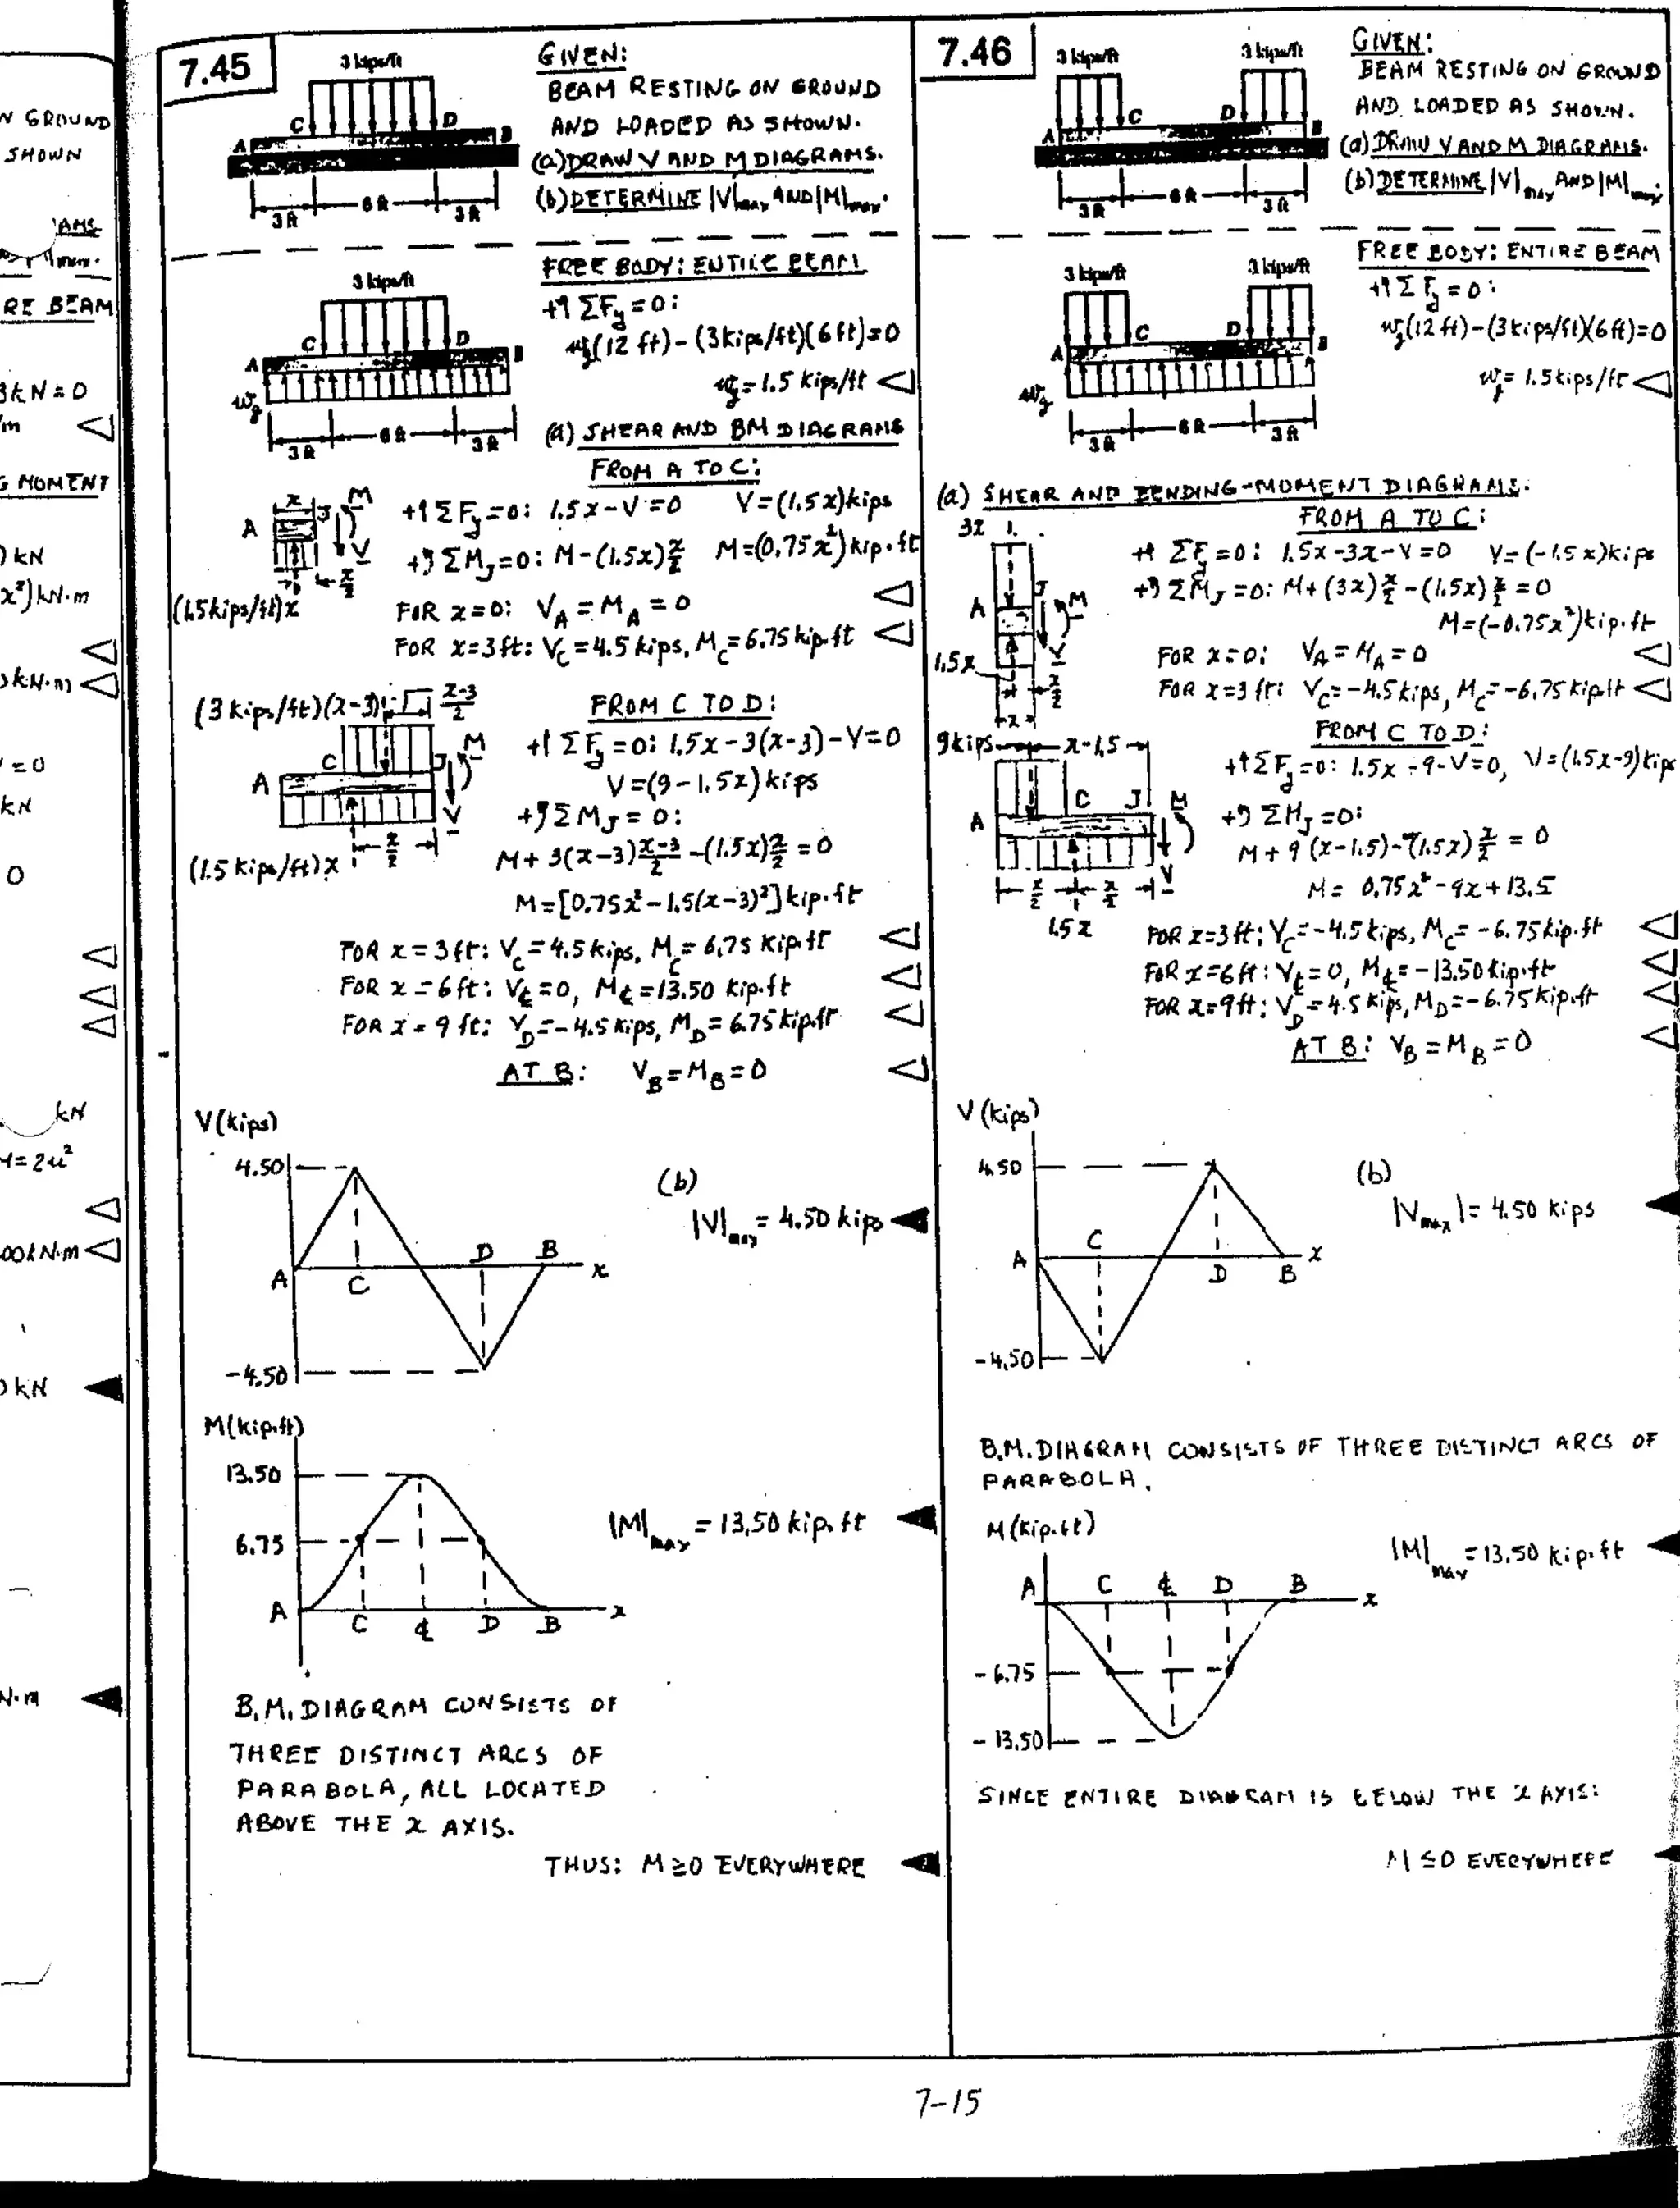 N GROUND
SHOWN
AMS
max.
RE BEAM
3kN=0
/m
G MOMENT
) kN
x²) kN·m
)kN·m
=0
kN
0
kN
M=2u²
00kN·m
)kN
N·m
7.45
3 kips/ft
C
D
A
B
3 ft
6 ft
3 ft
GIVEN:
BEAM RESTING ON GROUND
AND LOADED AS SHOWN.
(a) DRAW V AND M DIAGRAMS.
(b) DETERMINE |V|max AND |M|max.
FREE BODY: ENTIRE BEAM
3 kips/ft
C
D
A
B
wg
3 ft
6 ft
3 ft
+↑ΣFy=0:
wg(12 ft)-(3kips/ft)(6ft)=0
wg=1.5 kips/ft
(a) SHEAR AND BM DIAGRAMS
FROM A TO C:
x
M
A
J
V
x/2
(1.5kips/ft)x
+↑ΣFy=0: 1.5x-V=0 V=(1.5x)kips
+↺ΣMJ=0: M-(1.5x)x/2 M=(0.75x²)kip·ft
FOR x=0: VA=MA=0
FOR x=3ft: Vc=4.5 kips, Mc=6.75 kip·ft
(3 kips/ft)(x-3)
x-3/2
FROM C TO D:
C
J
M
A
V
x/2
(1.5 kips/ft)x
+↑ΣFy=0: 1.5x-3(x-3)-V=0
V=(9-1.5x) kips
+↺ΣMJ=0:
M+3(x-3)x-3/2-(1.5x)x/2=0
M=[0.75x²-1.5(x-3)²]kip·ft
FOR x=3ft: Vc=4.5 kips, Mc=6.75 kip·ft
FOR x=6ft: V℄=0, M℄=13.50 kip·ft
FOR x=9 ft: VD=-4.5 kips, MD=6.75 kip·ft
AT B: VB=MB=0
V(kips)
4.50
A
C
D
B
x
-4.50
(b)
|V|max=4.50 kips
M(kip·ft)
13.50
6.75
A
C
℄
D
B
x
|M|max=13.50 kip·ft
B.M. DIAGRAM CONSISTS OF
THREE DISTINCT ARCS OF
PARABOLA, ALL LOCATED
ABOVE THE x AXIS.
THUS: M≥0 EVERYWHERE
7.46
3 kips/ft
3 kips/ft
C
D
A
B
3 ft
6 ft
3 ft
GIVEN:
BEAM RESTING ON GROUND
AND LOADED AS SHOWN.
(a) DRAW V AND M DIAGRAMS.
(b) DETERMINE |V|max AND |M|max.
FREE BODY: ENTIRE BEAM
3 kips/ft
3 kips/ft
C
D
A
B
wg
3 ft
6 ft
3 ft
+↑ΣFy=0:
wg(12 ft)-(3kips/ft)(6ft)=0
wg=1.5kips/ft
(a) SHEAR AND BENDING-MOMENT DIAGRAMS:
FROM A TO C:
3x
A
J
M
V
1.5x
x/2
x
+↑ΣFy=0: 1.5x-3x-V=0 V=(-1.5x)kips
+↺ΣMJ=0: M+(3x)x/2-(1.5x)x/2=0
M=(-0.75x²)kip·ft
FOR x=0: VA=MA=0
FOR x=3 ft: Vc=-4.5kips, Mc=-6.75 kip·ft
FROM C TO D:
9kips
x-1.5
C
J
M
A
V
x/2
x/2
1.5x
+↑ΣFy=0: 1.5x-9-V=0, V=(1.5x-9)kips
+↺ΣMJ=0:
M+9(x-1.5)-(1.5x)x/2=0
M=0.75x²-9x+13.5
FOR x=3ft: Vc=-4.5kips, Mc=-6.75kip·ft
FOR x=6ft: V℄=0, M℄=-13.50kip·ft
FOR x=9ft: VD=4.5 kips, MD=-6.75kip·ft
AT B: VB=MB=0
V(kips)
4.50
A
C
D
B
x
-4.50
(b)
|Vmax|=4.50 kips
B.M. DIAGRAM CONSISTS OF THREE DISTINCT ARCS OF
PARABOLA.
M(kip·ft)
|M|max=13.50 kip·ft
A
C
℄
D
B
x
-6.75
-13.50
SINCE ENTIRE DIAGRAM IS BELOW THE x AXIS:
M≤0 EVERYWHERE
7-15